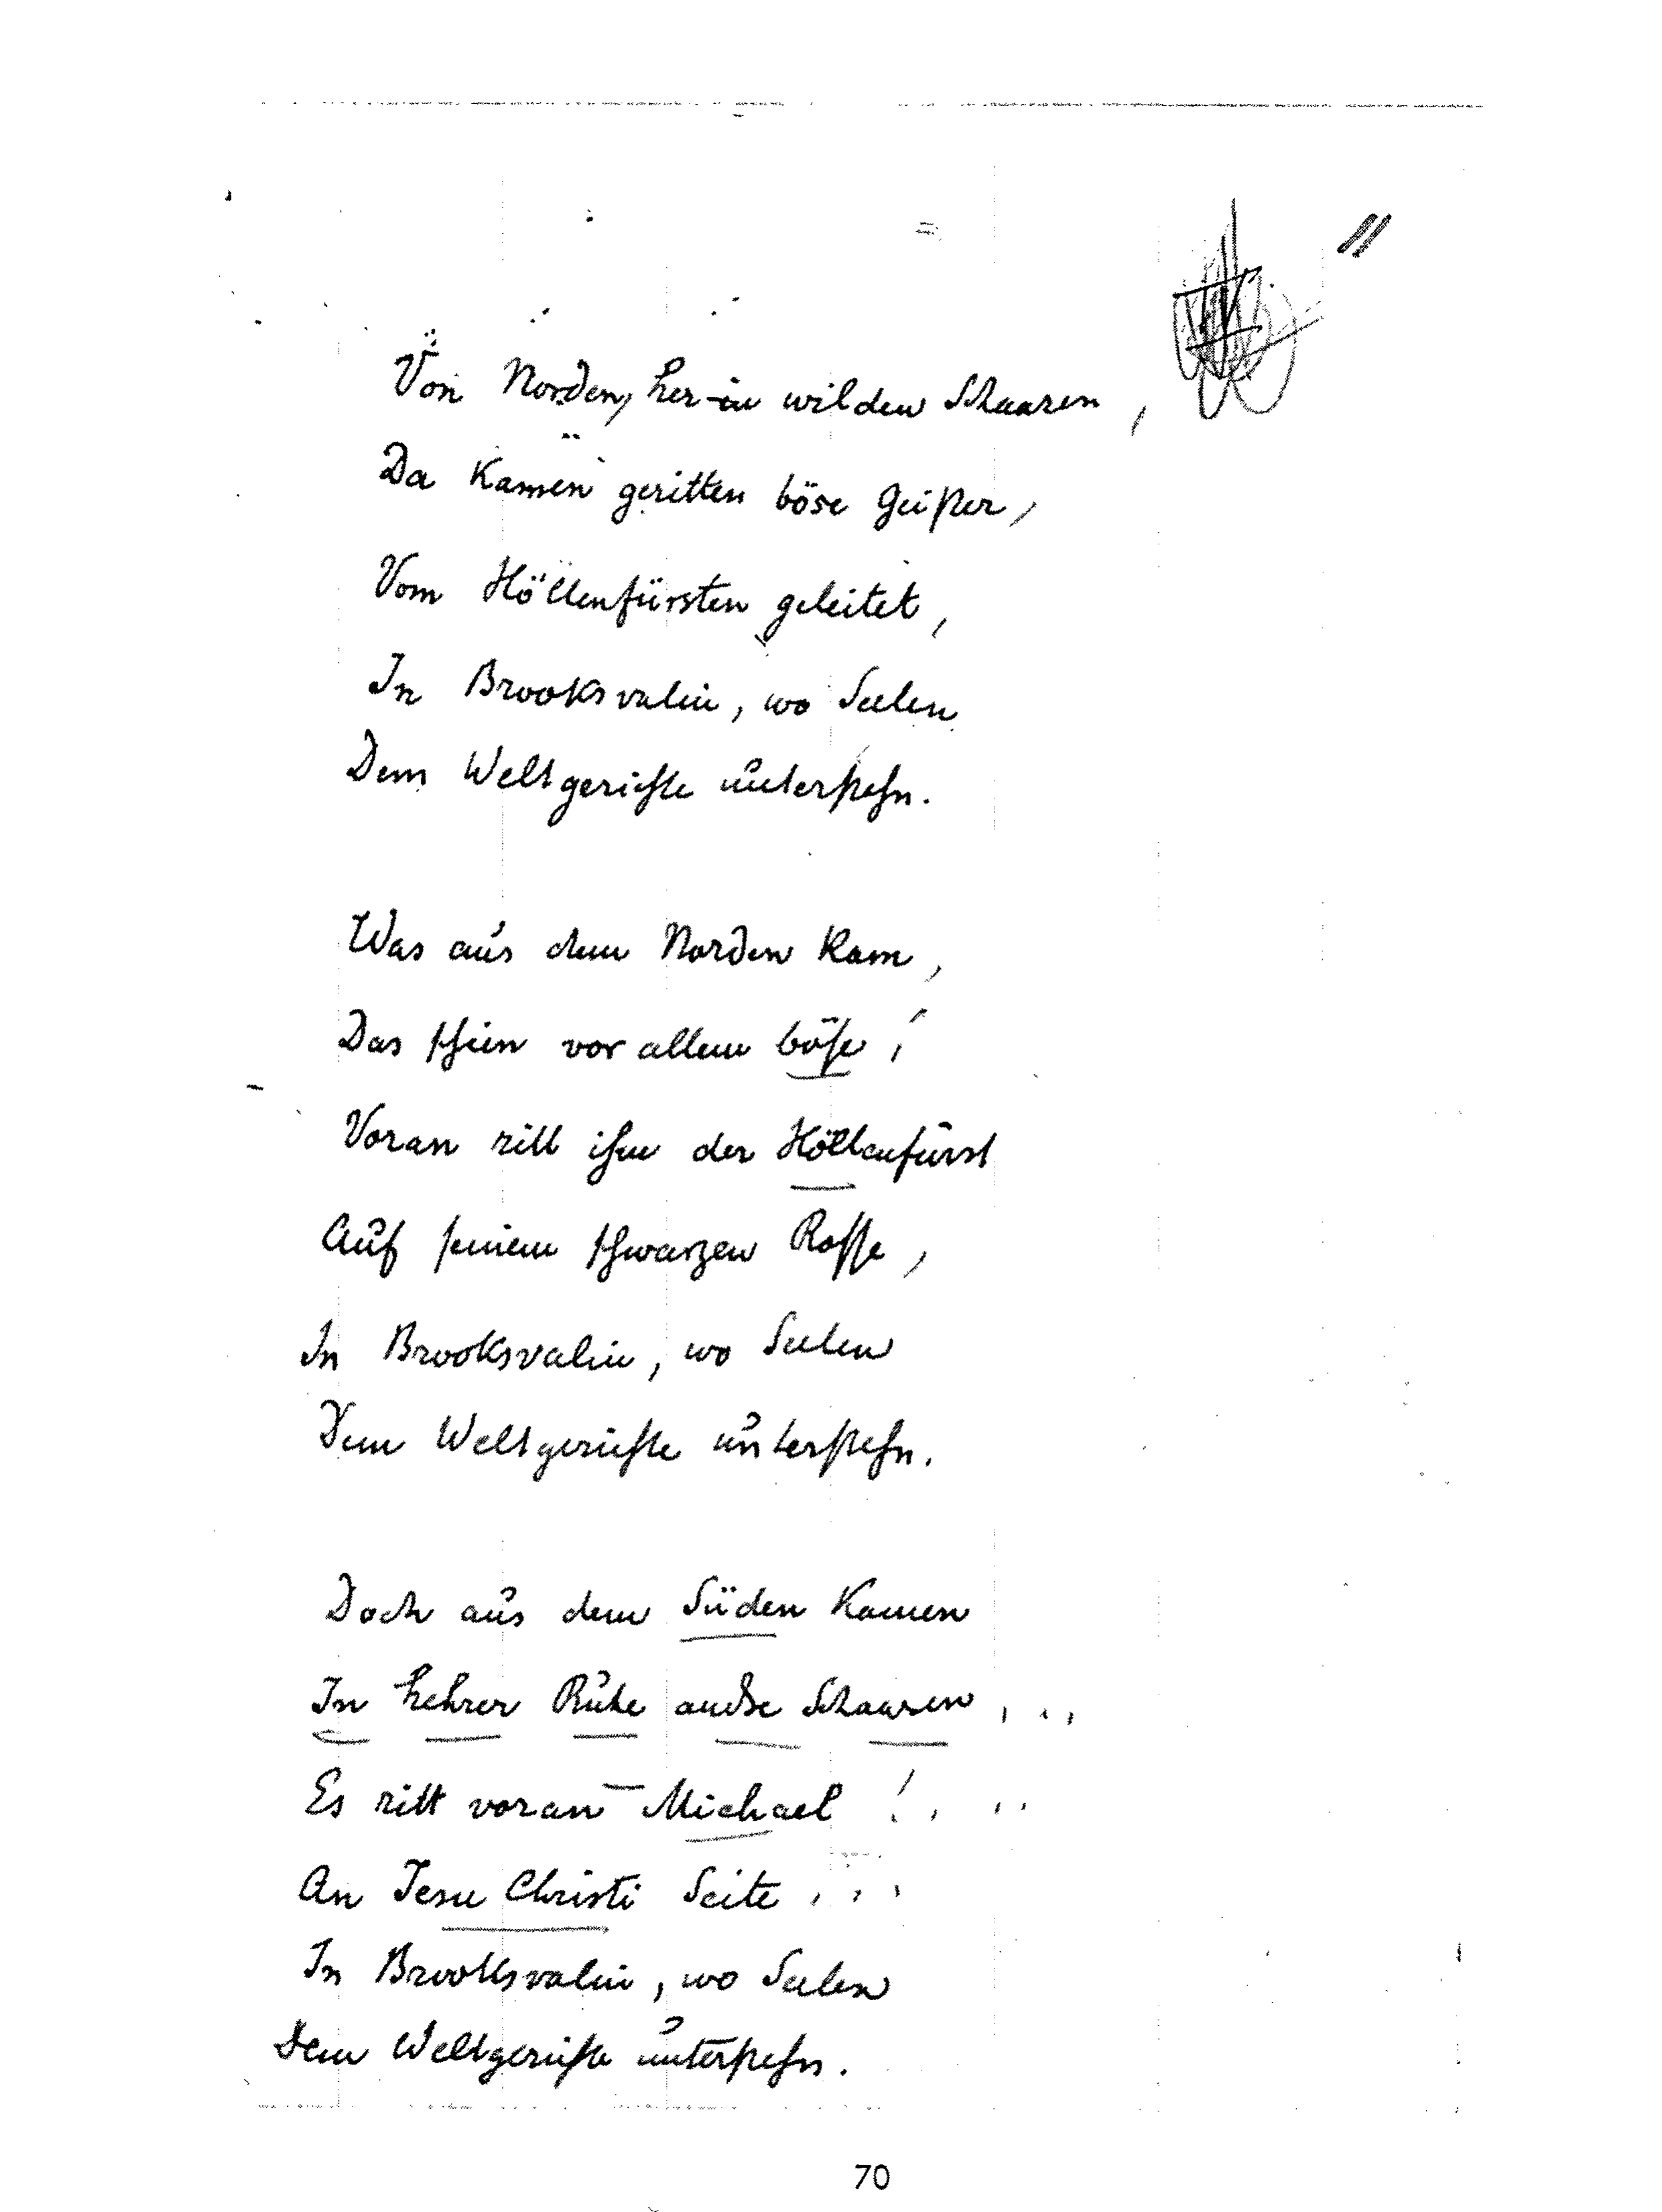 Von Norden, her in wilden Schaaren,
Da Kamen geritten böse Geister,
Vom Höllenfürsten geleitet,
In Brooksvalin, wo Seelen
Dem Weltgerichte unterstehn.
Was aus dem Norden Kam,
Das schien vor allem böse;
Voran ritt ihm der Höllenfürst
Auf seinem schwarzen Rosse,
In Brooksvalin, wo Seelen
Dem Weltgerichte unterstehn.
Doch aus dem Süden Kamen
In hehrer Ruhe andre Schaaren, . .,
Es ritt voran – Michael !, . .
An Jesu Christi Seite . . .
In Brooksvalin, wo Seelen
Dem Weltgerichte unterstehn.
70